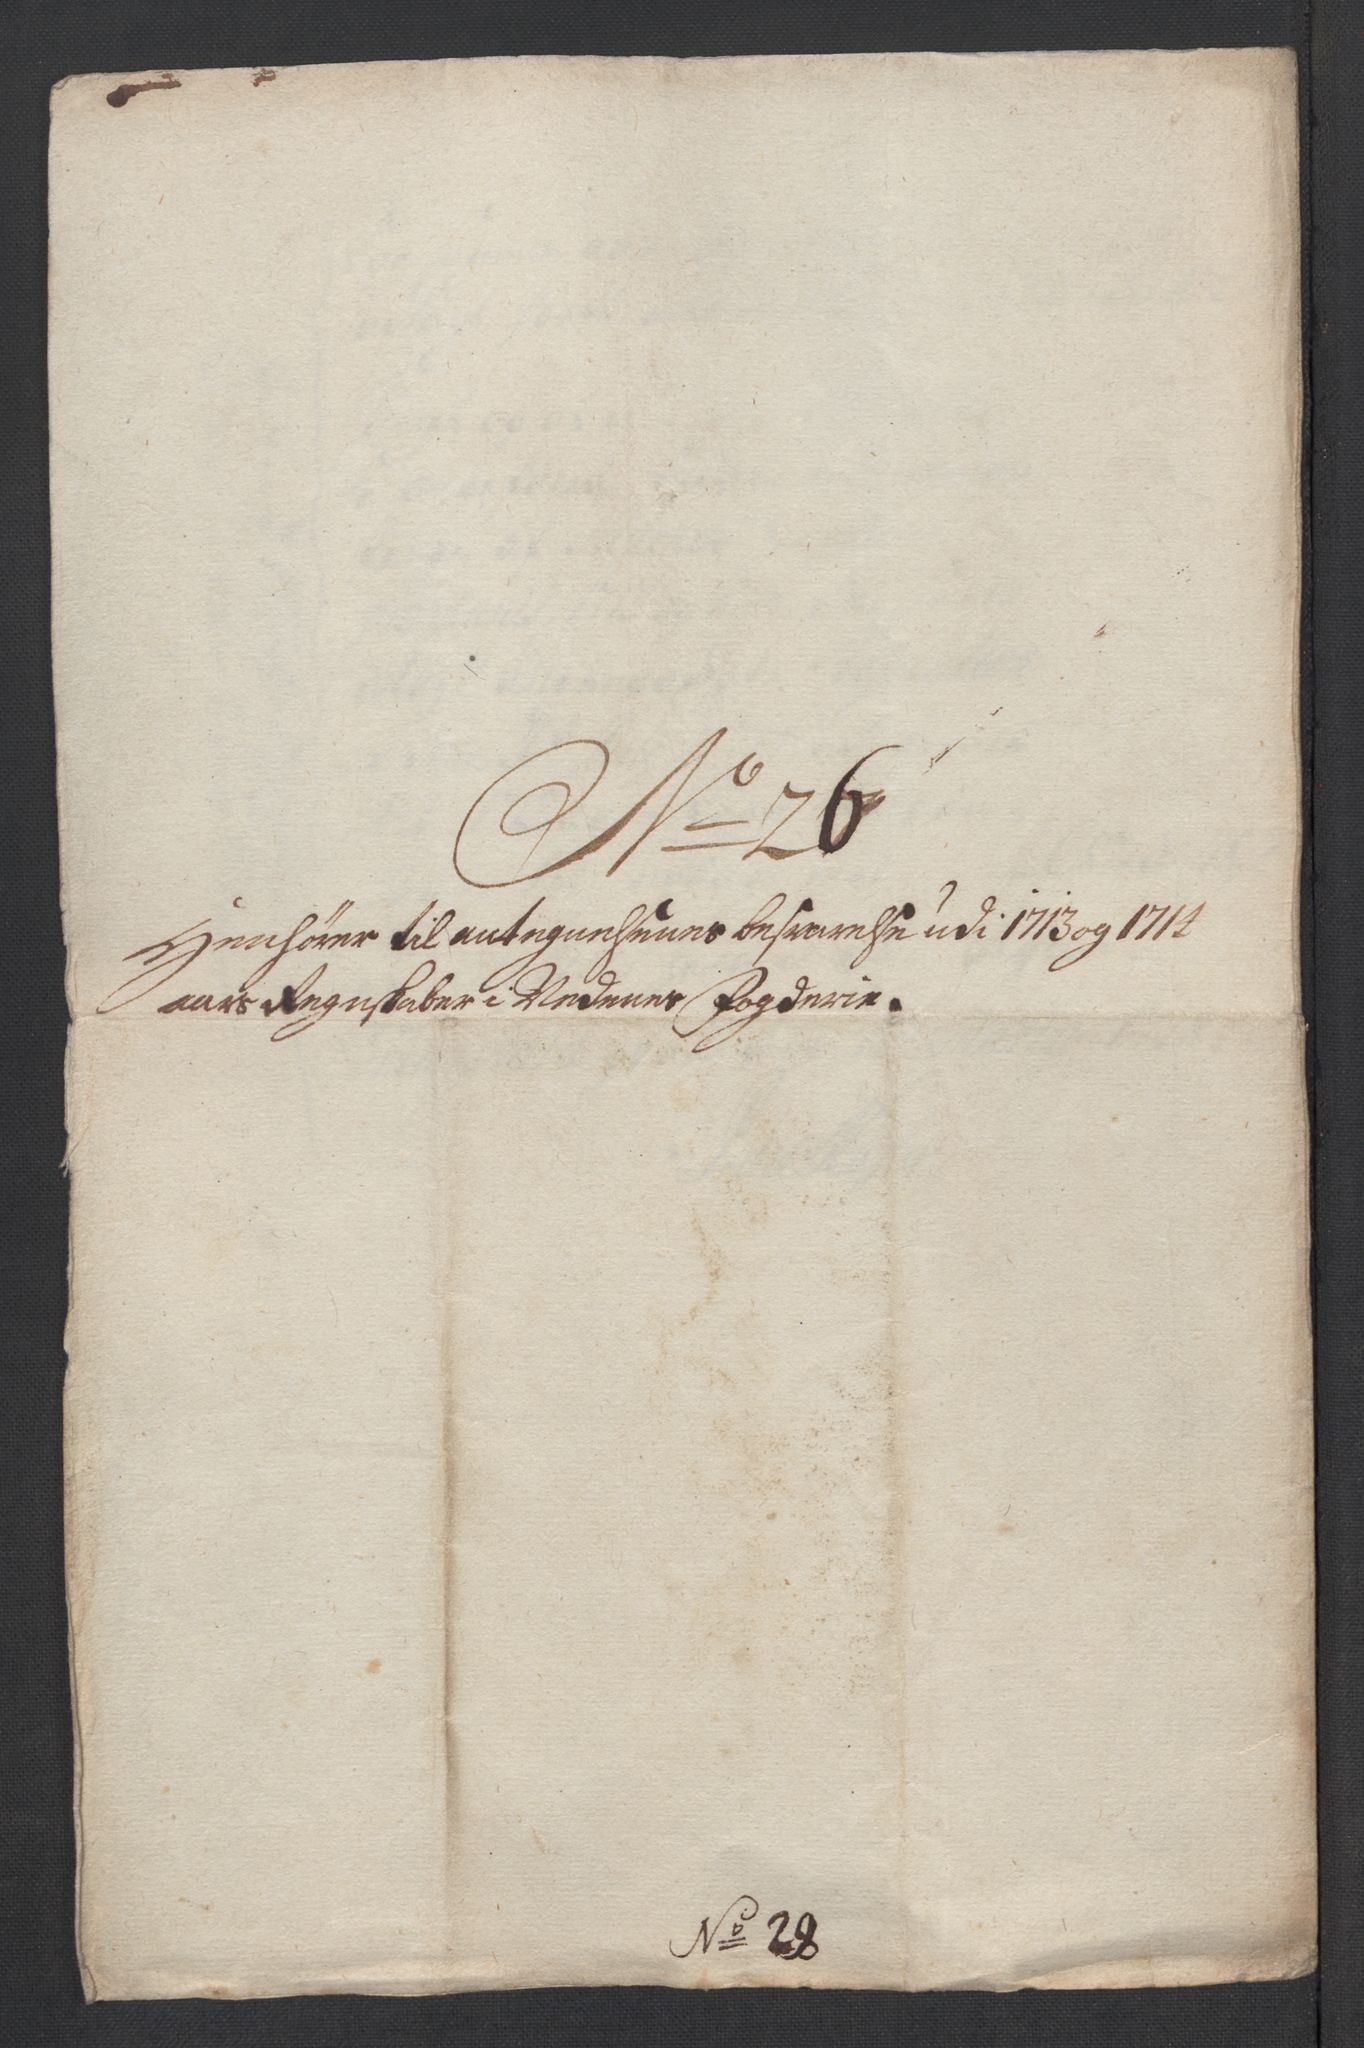 No 26
Henhörer til antegnelsernes besvarelse udi 1713 og 1714
aars Regnskaber i Nedenes Fogderie.
No 28